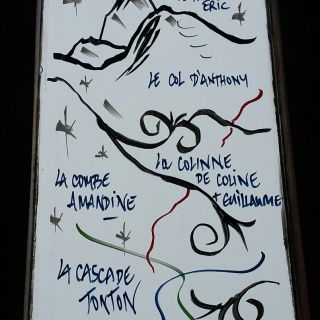 ERIC
LE COL D'ANTHONY
LA COLINNE
DE COLINE
+ GUILLAUME
LA COMBE
AMANDINE
LA CASCADE
TONTON